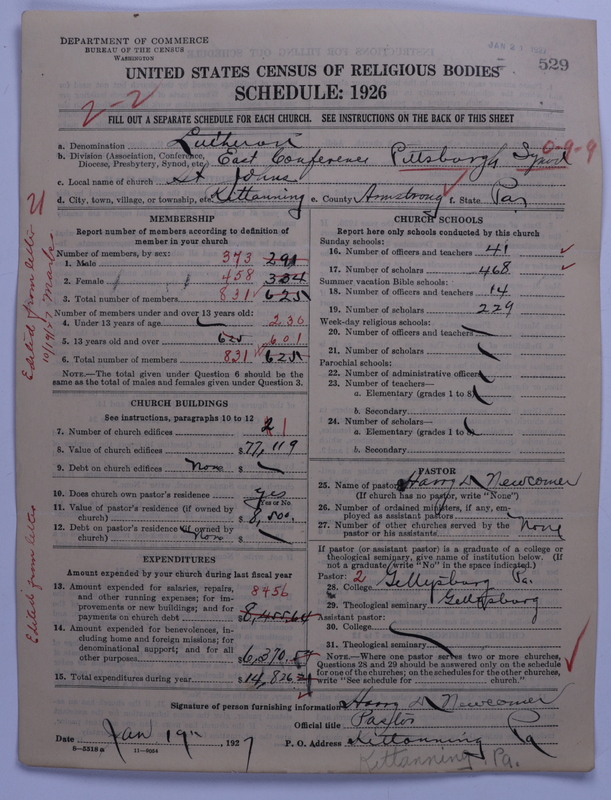 DEPARTMENT OF COMMERCE
BUREAU OF THE CENSUS
WASHINGTON
529
UNITED STATES CENSUS OF RELIGIOUS BODIES
SCHEDULE: 1926
2-2
FILL OUT A SEPARATE SCHEDULE FOR EACH CHURCH. SEE INSTRUCTIONS ON THE BACK OF THIS SHEET
a. Denomination Lutheran
0-9-9
b. Division (Association, Conference, Diocese, Presbytery, Synod, etc.) East Conference Pittsburgh Synod
c. Local name of church St Johns
d. City, town, village, or township, etc. Kittanning e. County Armstrong f. State Pa.
MEMBERSHIP
Report number of members according to definition of member in your church
Number of members, by sex:
1. Male 373 291
2. Female 458 334
3. Total number of members 831 625
Number of members under and over 13 years old:
4. Under 13 years of age 230
5. 13 years old and over 625 601
6. Total number of members 831 625
NOTE.—The total given under Question 6 should be the same as the total of males and females given under Question 3.
CHURCH BUILDINGS
See instructions, paragraphs 10 to 12
7. Number of church edifices 2 1
8. Value of church edifices $ 77,119
9. Debt on church edifices None $
10. Does church own pastor's residence yes
Yes or No
11. Value of pastor's residence (if owned by church) $ 8,500.
12. Debt on pastor's residence (if owned by church) None $
EXPENDITURES
Amount expended by your church during last fiscal year
13. Amount expended for salaries, repairs, and other running expenses; for improvements or new buildings; and for payments on church debt 8456 $ 8,455.64
14. Amount expended for benevolences, including home and foreign missions; for denominational support; and for all other purposes $ 6,370.
15. Total expenditures during year $ 14,826
Edited from letter
10/9/57
Edited from letter
CHURCH SCHOOLS
Report here only schools conducted by this church
Sunday schools:
16. Number of officers and teachers 41
17. Number of scholars 468
Summer vacation Bible schools:
18. Number of officers and teachers 14
19. Number of scholars 229
Week-day religious schools:
20. Number of officers and teachers
21. Number of scholars
Parochial schools:
22. Number of administrative officers
23. Number of teachers—
a. Elementary (grades 1 to 8)
b. Secondary
24. Number of scholars—
a. Elementary (grades 1 to 8)
b. Secondary
PASTOR
25. Name of pastor Harry D Newcomer
(If church has no pastor, write "None")
26. Number of ordained ministers, if any, employed as assistant pastors
27. Number of other churches served by the pastor or his assistants None
If pastor (or assistant pastor) is a graduate of a college or theological seminary, give name of institution below. (If not a graduate, write "No" in the space indicated.)
Pastor: 2
28. College Gettysburg Pa.
29. Theological seminary Gettysburg
Assistant pastor:
30. College
31. Theological seminary
NOTE.—Where one pastor serves two or more churches, Questions 28 and 29 should be answered only on the schedule for one of the churches; on the schedules for the other churches, write "See schedule for ........ church."
Signature of person furnishing information Harry D Newcomer
Official title Pastor
Date Jan 19th, 1927
P. O. Address Kittanning Pa
8—5518a 11—8034
Kittanning Pa.